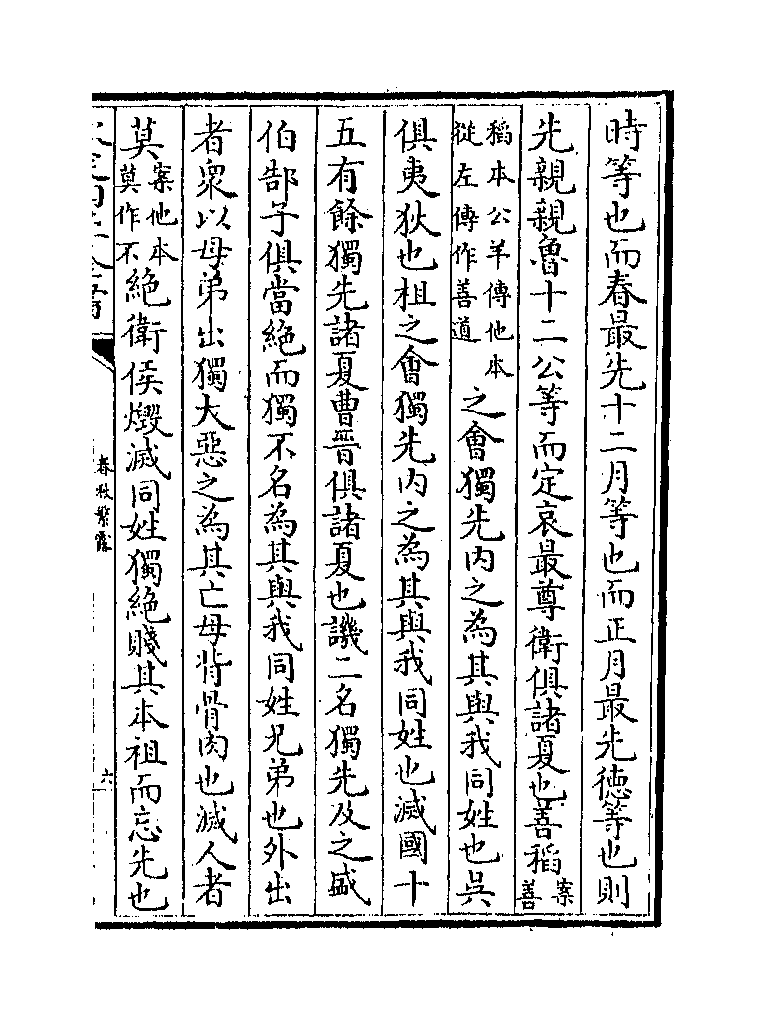 時等也而春最先十二月等也而正月最先德等也則
先親親魯十二公等而定哀最尊衛俱諸夏也善稻案善
稻本公羊傳他本從左傳作善道之會獨先内之為其與我同姓也吳
俱夷狄也柤之會獨先内之為其與我同姓也滅國十
五有餘獨先諸夏曹晉俱諸夏也譏二名獨先及之盛
伯郜子俱當絶而獨不名為其與我同姓兄弟也外出
者衆以母弟出獨大惡之為其亡母背骨肉也滅人者
莫案他本莫作不絶衛侯燬滅同姓獨絶賤其本祖而忘先也
春秋繁露
六